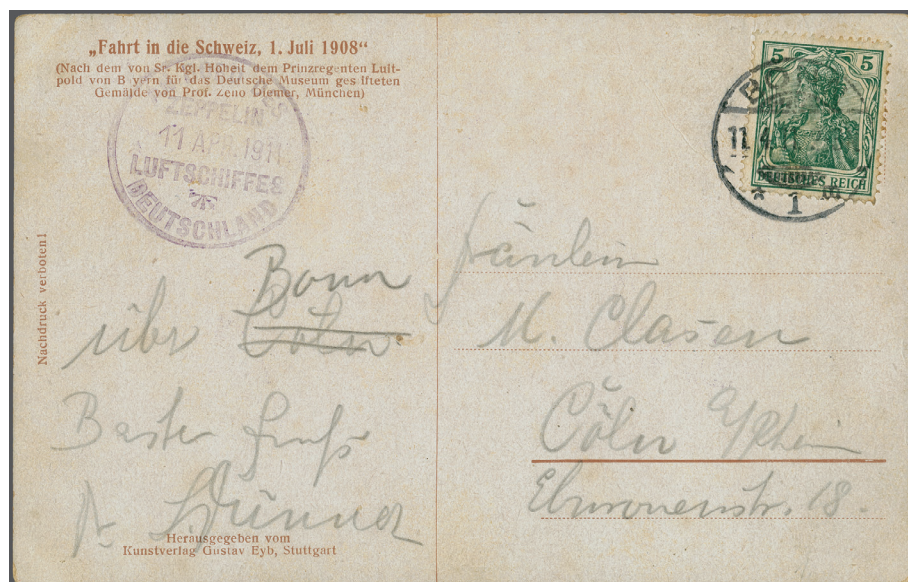 „Fahrt in die Schweiz, 1. Juli 1908“
(Nach dem von Sr. Kgl. Hoheit dem Prinzregenten Luit-
pold von Bayern für das Deutsche Museum gestifteten
Gemälde von Prof. Zeno Diemer, München)
ZEPPELIN
11 APR. 1911
LUFTSCHIFFES
DEUTSCHLAND
Nachdruck verboten!
über Bonn Cöln
Beste Gruß
Herausgegeben vom
Kunstverlag Gustav Eyb, Stuttgart
5 5
DEUTSCHES REICH
11.4.
* 1
Fräulein
M. Clasen
Cöln a/Rhein
Eburonenstr. 18.